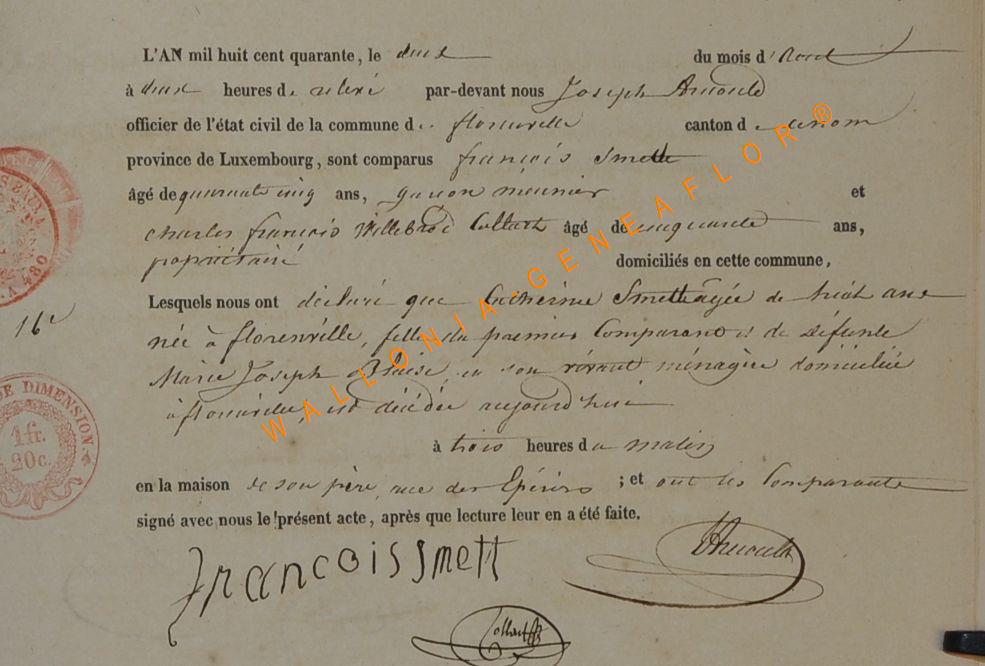 L'AN mil huit cent quarante, le deux du mois d'Aout
à deux heures de relevé par-devant nous Joseph Arnould
officier de l'état civil de la commune de florenville canton de
province de Luxembourg, sont comparus françois Smette
âgé de quarante cinq ans, garcon meunier et
charles françois Willebrod Collarth âgé de cinquante ans,
propriétaire domiciliés en cette commune,
Lesquels nous ont déclaré que Catherine Smette âgée de huit ans
16e
née à florenville, fille du premier Comparant et de défunte
Marie Joseph Blaise en son vivant ménagère domiciliée
à florenville, est décédée aujourd'hui
à trois heures du matin
en la maison de son père, rue des Epiciers ; et ont les Comparants
signé avec nous le présent acte, après que lecture leur en a été faite.
francois Smett
Arnould
Collarth
DE DIMENSION
1 fr.
20c.
480
WALLONIA-GENEAFLOR®